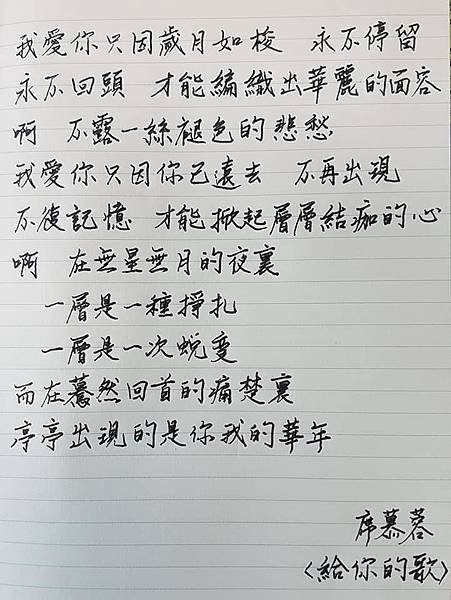 我愛你只因歲月如梭　永不停留
永不回頭　才能編織出華麗的面容
啊　不露一絲褪色的悲愁
我愛你只因你已遠去　不再出現
不復記憶　才能掀起層層結痂的心
啊　在無星無月的夜裏
一層是一種掙扎
一層是一次蛻變
而在驀然回首的痛楚裏
亭亭出現的是你我的華年
席慕蓉
〈給你的歌〉